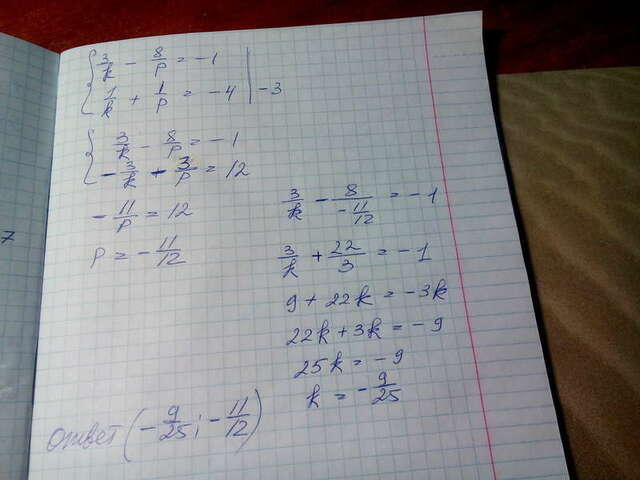 { 3/k - 8/p = -1
1/k + 1/p = -4 | -3
{ 3/k - 8/p = -1
- 3/k - 3/p = 12
- 11/p = 12
p = - 11/12
3/k - 8/(- 11/12) = -1
3/k + 22/3 = -1
9 + 22k = -3k
22k + 3k = -9
25k = -9
k = - 9/25
ответ (- 9/25; - 11/12)
7